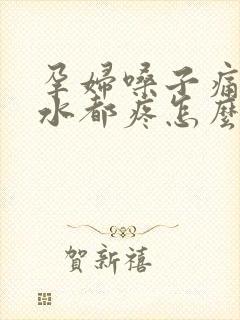 孕婦嗓子痛
水都疼怎麼
賀新禧